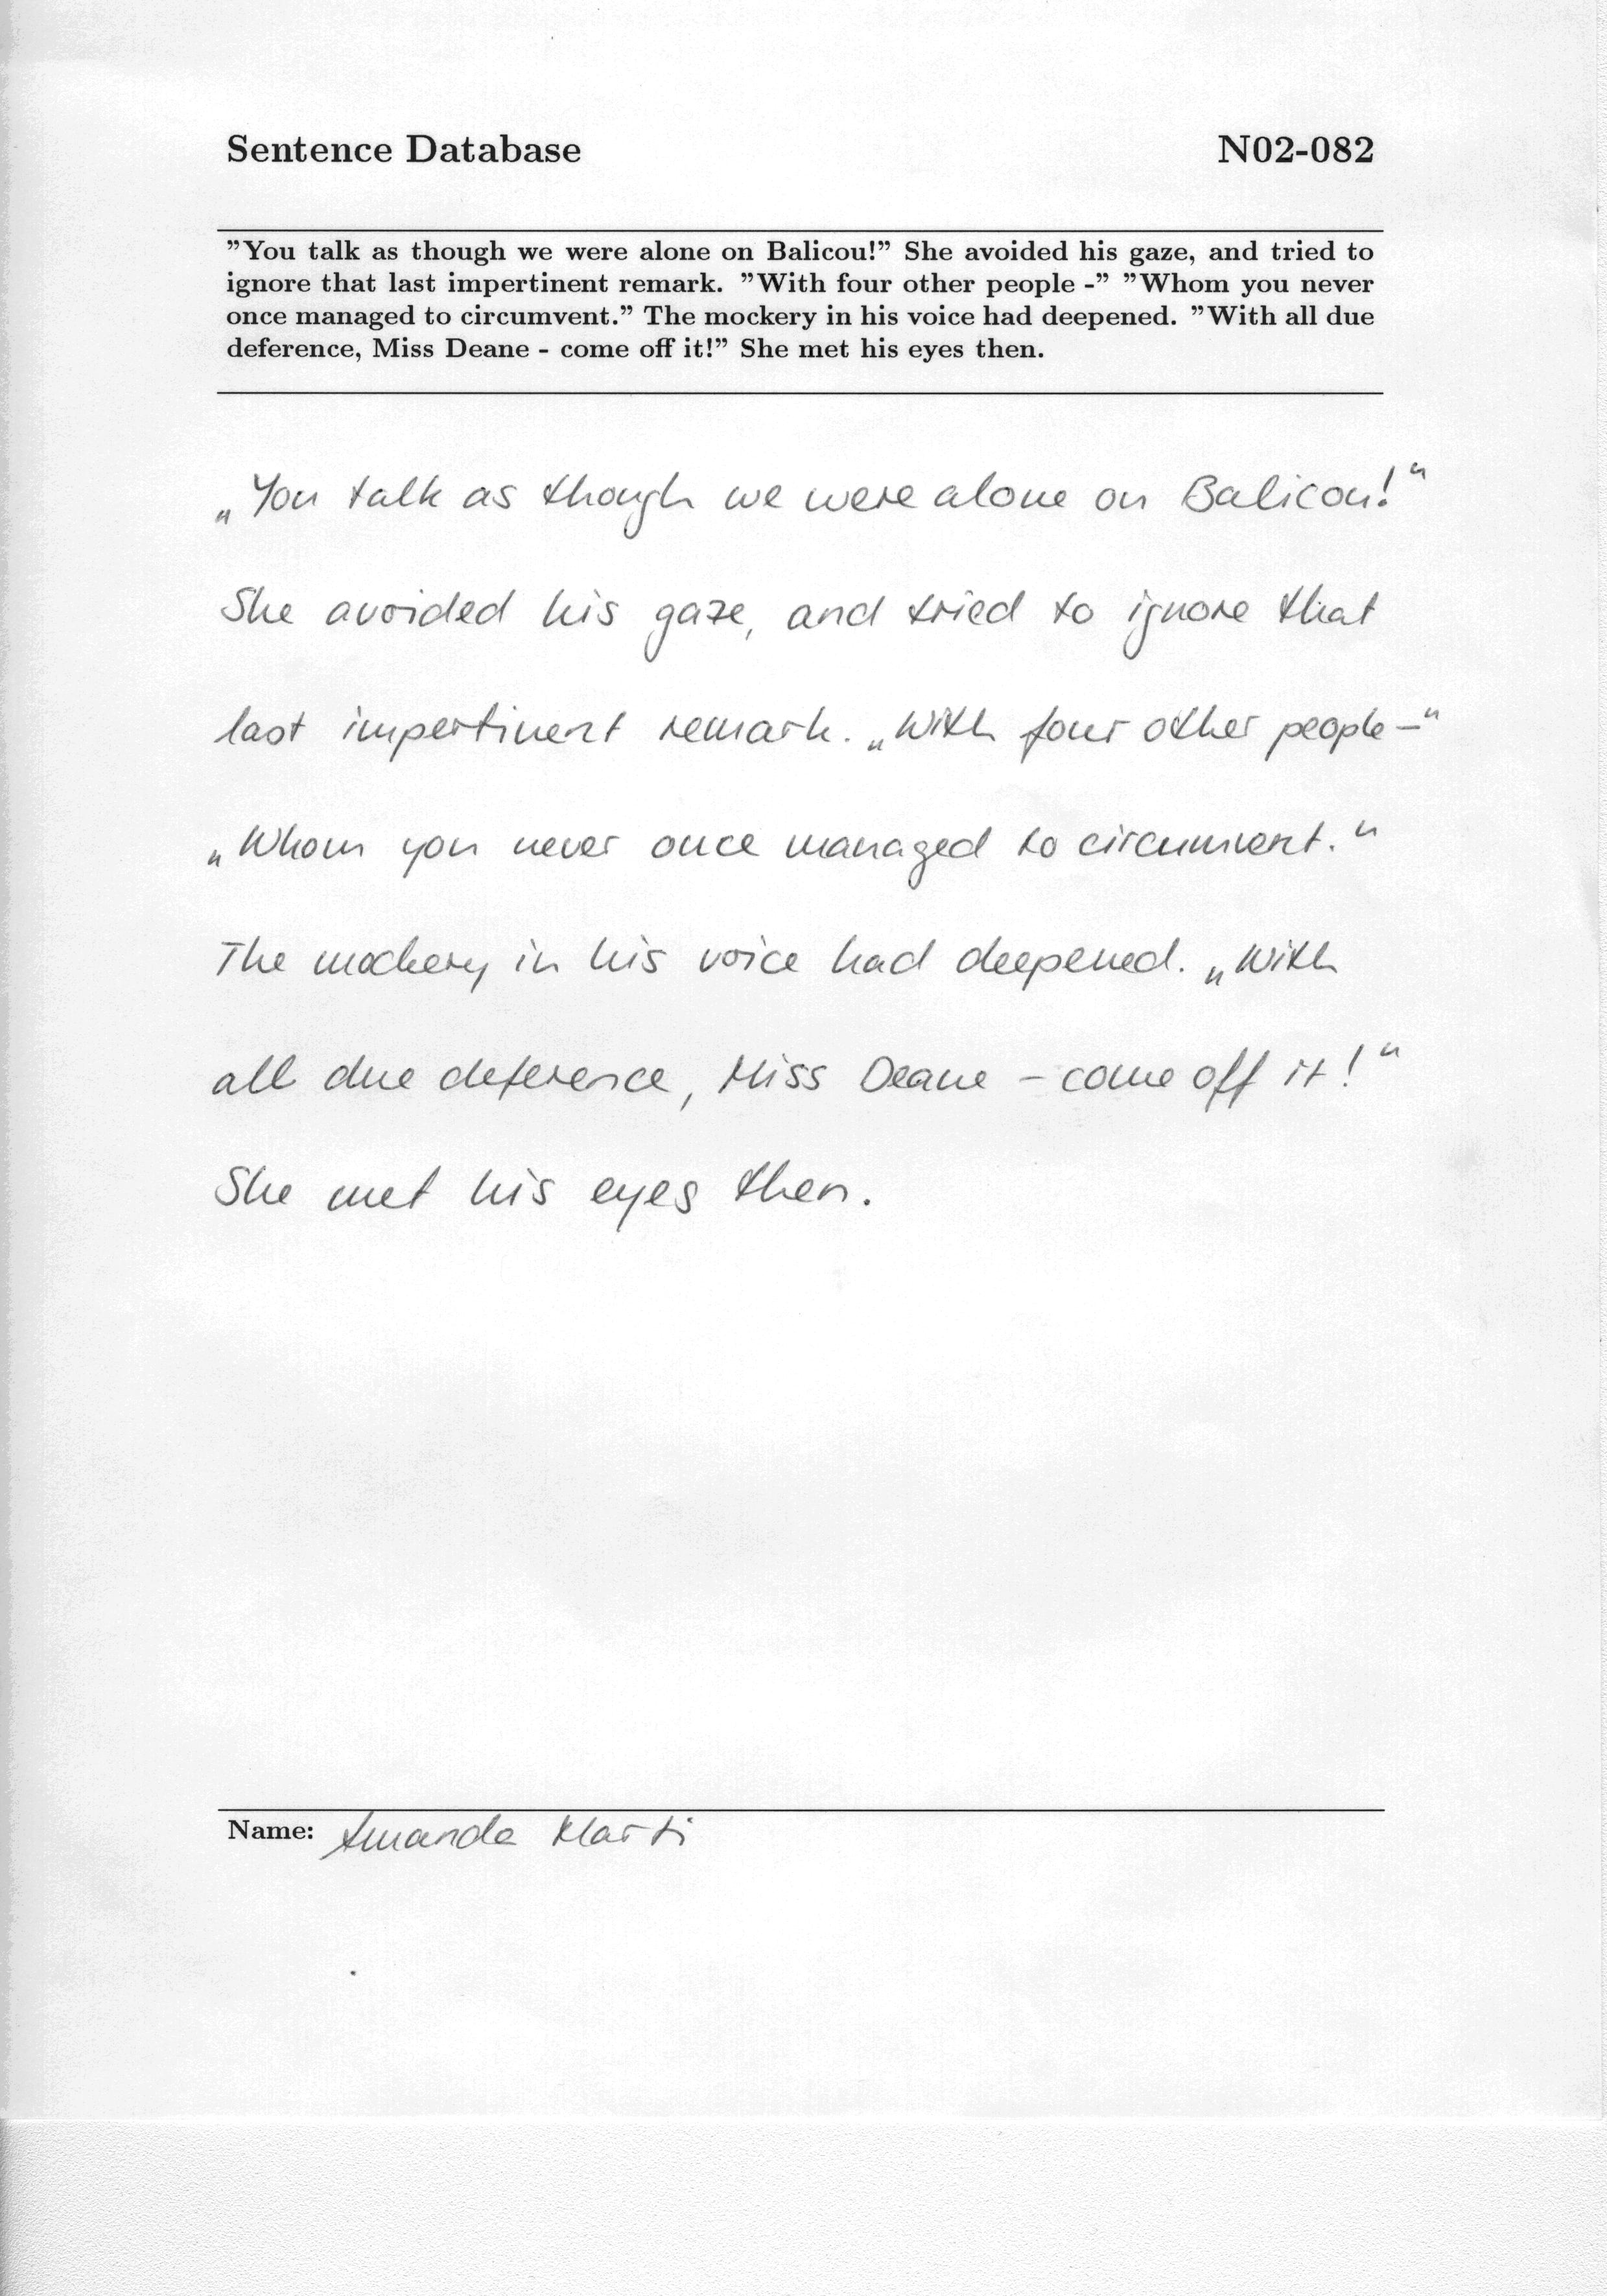 Sentence Database N02-082
"You talk as though we were alone on Balicou!" She avoided his gaze, and tried to
ignore that last impertinent remark. "With four other people -" "Whom you never
once managed to circumvent." The mockery in his voice had deepened. "With all due
deference, Miss Deane - come off it!" She met his eyes then.
„You talk as though we were alone on Balicou!“
She avoided his gaze, and tried to ignore that
last impertinent remark. „With four other people –“
„Whom you never once managed to circumvent.“
The mockery in his voice had deepened. „With
all due deference, Miss Deane – come off it!“
She met his eyes then.
Name: Amanda Marti